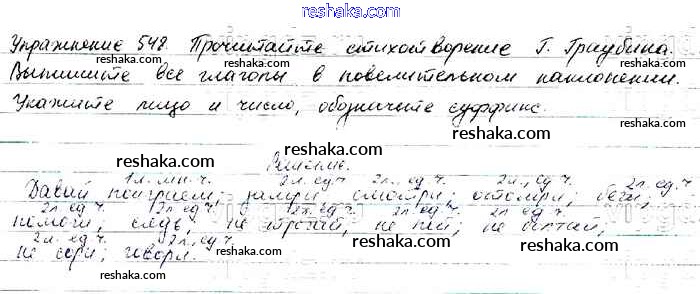 reshaka.com
Упражнение 548. Прочитайте стихотворение Г. Граубина.
reshaka.com
Выпишите все глаголы в повелительном наклонении.
reshaka.com reshaka.com
Укажите лицо и число, обозначьте суффикс.
reshaka.com
reshaka.com Решение. reshaka.com
1л. мн. ч. 2л. ед ч. 2л. ед ч. 2л. ед ч. 2л. ед. ч.
Давай поиграем; замри; смотри; отомри; беги;
2л. ед ч. 2л. ед ч. 2л. ед ч. 2л. ед ч. 2л. ед. ч.
помоги, не трогай, не пей; не болтай,
reshaka.com reshaka.com
2л. ед. ч. 2л. ед. ч.
не сори; говори.
reshaka.com reshaka.com
reshaka.com